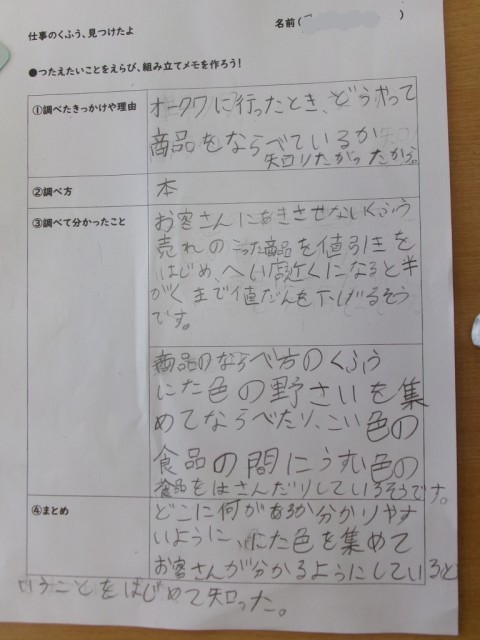 仕事のくふう、見つけたよ
名前( )
●つたえたいことをえらび、組み立てメモを作ろう!
①調べたきっかけや理由
オークワに行ったとき、どうやって
商品をならべているか
知りたがったから。
②調べ方
本
③調べて分かったこと
お客さんにあきさせないくふう
売れのこった商品を値引きを
はじめ、へい店近くになると半
がくまで値だんを下げるそう
です。
商品のならべ方のくふう
にた色の野さいを集
めてならべたり、こい色の
食品の間にうすい色の
食品をはさんだりしているそうです。
④まとめ
どこに何があるか分かりやす
いように、にた色を集めて
お客さんが分かるようにしていると
いうことをはじめて知った。